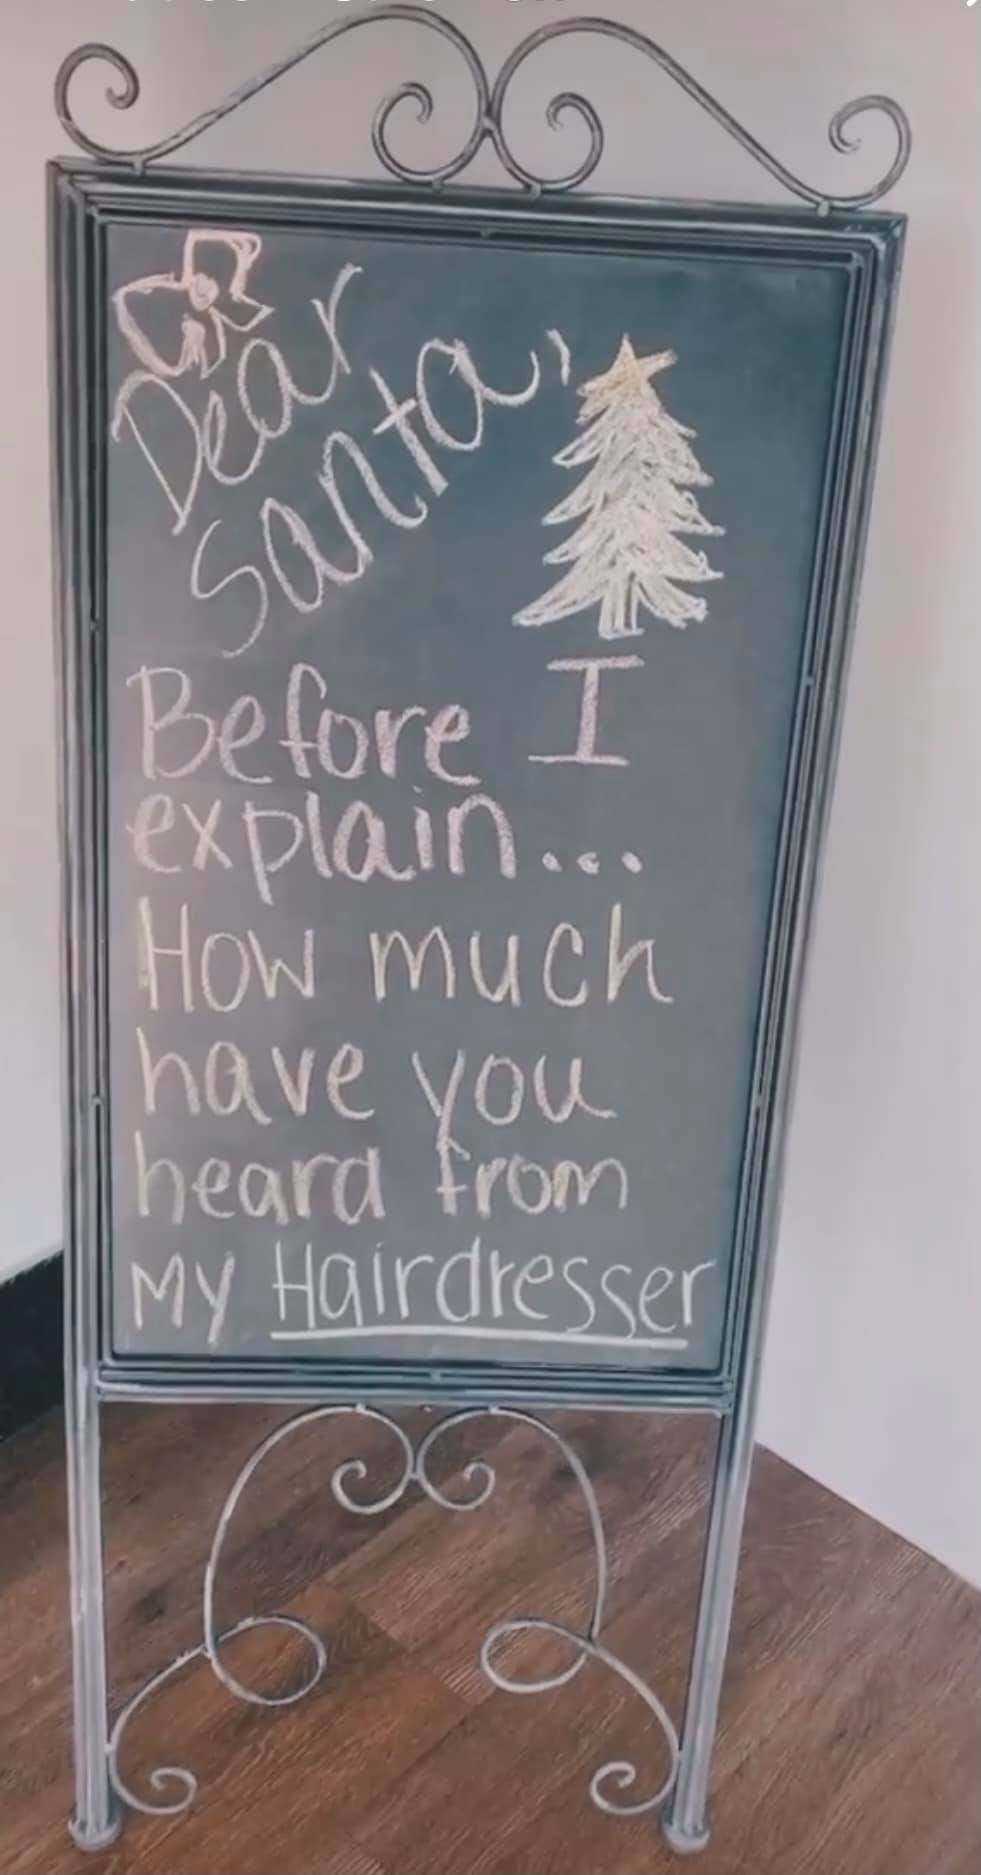 Dear
Santa,
Before I
explain...
How much
have you
heard from
my Hairdresser